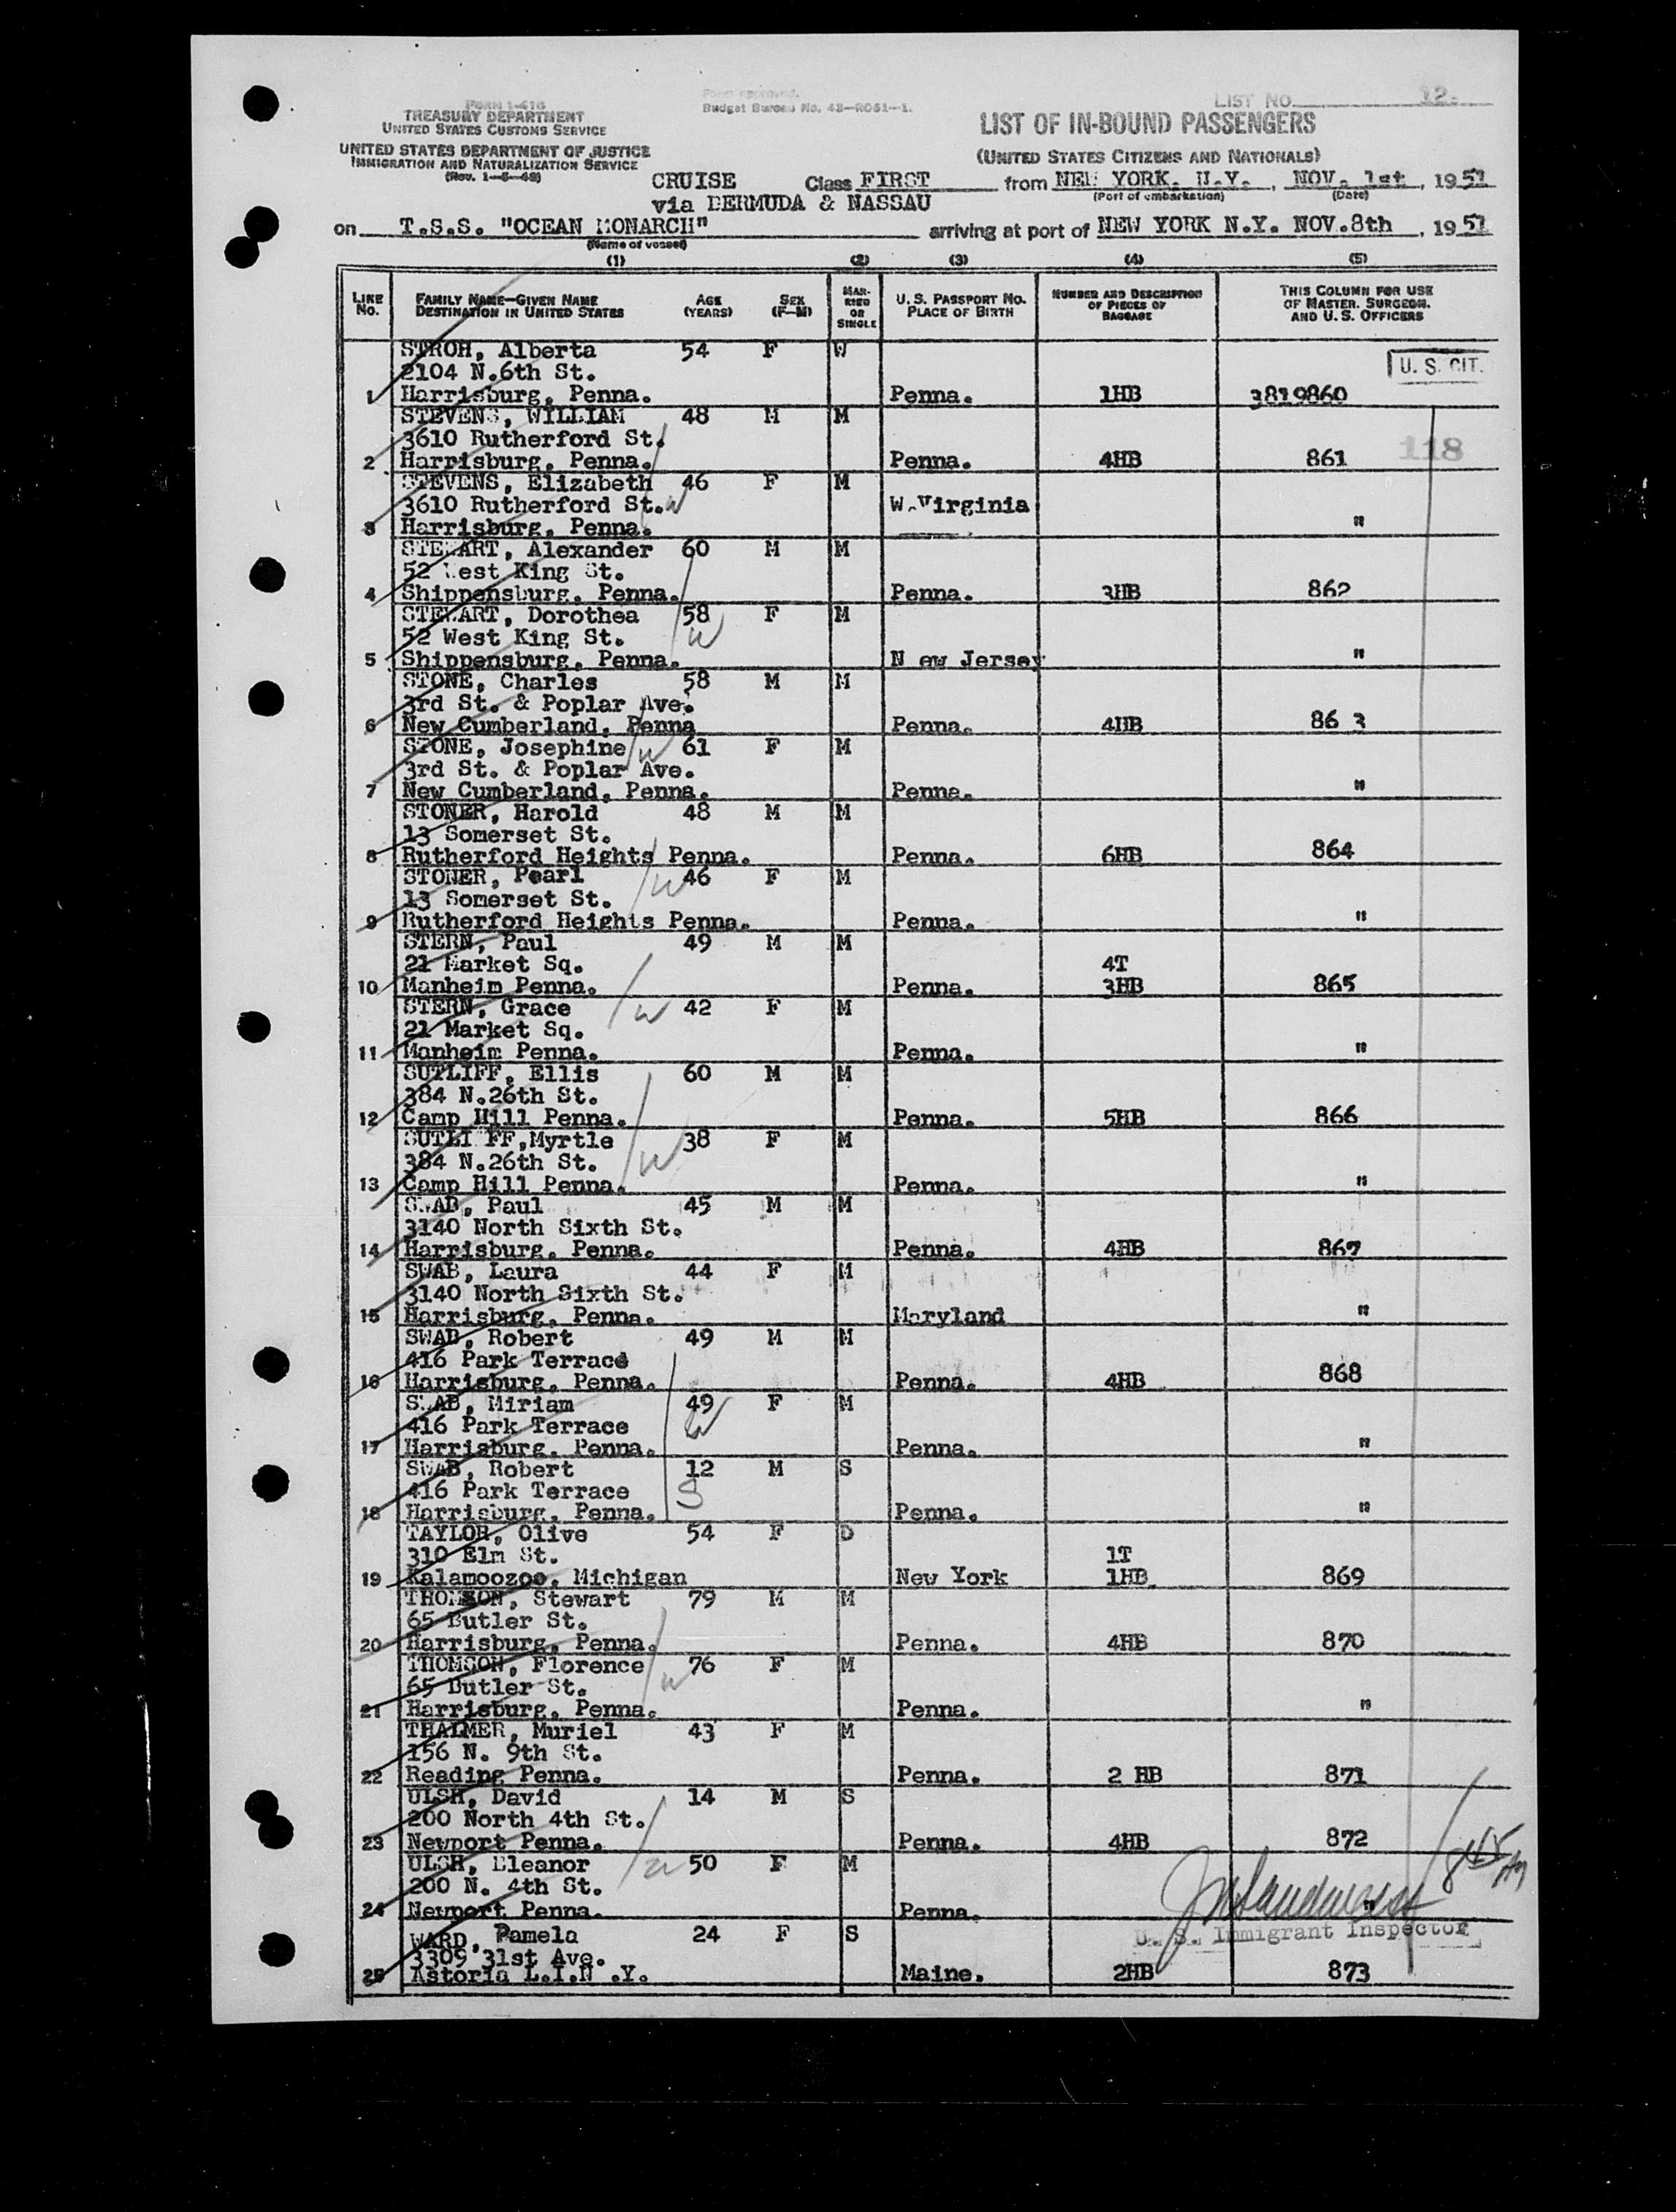 FORM I-416
TREASURY DEPARTMENT
UNITED STATES CUSTOMS SERVICE
UNITED STATES DEPARTMENT OF JUSTICE
IMMIGRATION AND NATURALIZATION SERVICE
Form approved.
Budget Bureau No. 43—R061—1.
LIST NO. 12.
LIST OF IN-BOUND PASSENGERS
(UNITED STATES CITIZENS AND NATIONALS)
CRUISE Class FIRST from NEW YORK. N.Y. , NOV. 1st , 1951
(Port of embarkation) (Date)
via BERMUDA & NASSAU
on T.S.S. "OCEAN MONARCH" arriving at port of NEW YORK N.Y. NOV.8th , 1951
(Name of vessel)
(1) (2) (3) (4) (5)
LINE No. FAMILY NAME—GIVEN NAME DESTINATION IN UNITED STATES AGE (YEARS) SEX (F—M) MARRIED OR SINGLE U. S. PASSPORT NO. PLACE OF BIRTH NUMBER AND DESCRIPTION OF PIECES OF BAGGAGE THIS COLUMN FOR USE OF MASTER, SURGEON, AND U. S. OFFICERS
STROH, Alberta 54 F W
2104 N.6th St. U. S. CIT.
1 Harrisburg, Penna. Penna. 1HB 3819860
STEVENS, WILLIAM 48 M M
3610 Rutherford St. 118
2 Harrisburg, Penna. Penna. 4HB 861
STEVENS, Elizabeth 46 F M
3610 Rutherford St. W W.Virginia
3 Harrisburg, Penna. "
STEWART, Alexander 60 M M
52 West King St.
4 Shippensburg, Penna. Penna. 3HB 862
STEWART, Dorothea 58 F M
52 West King St. W
5 Shippensburg, Penna. N ew Jersey "
STONE, Charles 58 M M
3rd St. & Poplar Ave.
6 New Cumberland, Penna Penna. 4HB 86 3
STONE, Josephine W 61 F M
3rd St. & Poplar Ave.
7 New Cumberland, Penna. Penna. "
STONER, Harold 48 M M
13 Somerset St.
8 Rutherford Heights Penna. Penna. 6HB 864
STONER, Pearl W 46 F M
13 Somerset St.
9 Rutherford Heights Penna. Penna. "
STERN, Paul 49 M M
21 Market Sq. 4T
10 Manheim Penna. Penna. 3HB 865
STERN, Grace W 42 F M
21 Market Sq.
11 Manheim Penna. Penna. "
SUTLIFF, Ellis 60 M M
384 N.26th St.
12 Camp Hill Penna. Penna. 5HB 866
SUTLIFF,Myrtle W 38 F M
384 N.26th St.
13 Camp Hill Penna. Penna. "
SWAB, Paul 45 M M
3140 North Sixth St.
14 Harrisburg, Penna. Penna. 4HB 867
SWAB, Laura 44 F M
3140 North Sixth St.
15 Harrisburg, Penna. Maryland "
SWAB, Robert 49 M M
416 Park Terrace
16 Harrisburg, Penna. Penna. 4HB 868
SWAB, Miriam 49 F M
416 Park Terrace W
17 Harrisburg, Penna. Penna. "
SWAB, Robert 12 M S
416 Park Terrace S
18 Harrisburg, Penna. Penna. "
TAYLOR, Olive 54 F D
310 Elm St. 1T
19 Kalamoozoo, Michigan New York 1HB 869
THOMSON, Stewart 79 M M
65 Butler St.
20 Harrisburg, Penna. Penna. 4HB 870
THOMSON, Florence W 76 F M
65 Butler St.
21 Harrisburg, Penna. Penna. "
THALMER, Muriel 43 F M
156 N. 9th St.
22 Reading Penna. Penna. 2 HB 871
ULSH, David 14 M S
200 North 4th St.
23 Newport Penna. Penna. 4HB 872
ULSH, Eleanor W 50 F M
200 N. 4th St.
24 Newport Penna. Penna. "
U. S. Immigrant Inspector
WARD, Pamela 24 F S
3309 31st Ave.
25 Astoria L.I.N .Y. Maine. 2HB 873